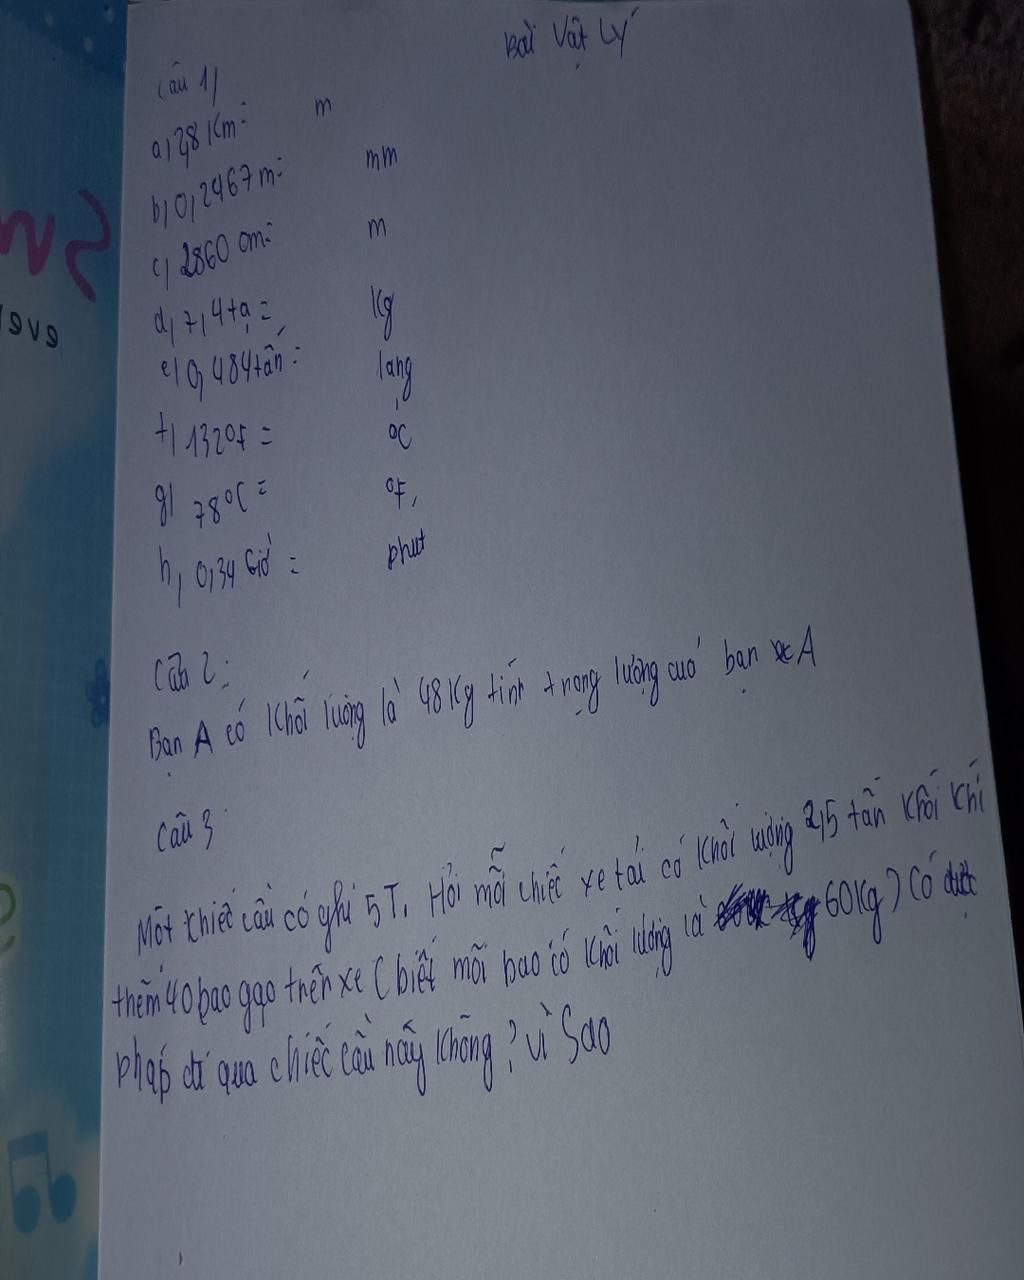 Bài Vật Lý
Câu 1)
a, 2,8 Km = m
b, 0,2467 m = mm
c, 2860 cm = m
d, 7,4 tạ = Kg
e, 0,484 tấn = lạng
f, 132°F = °C
g, 78°C = °F,
h, 0,34 Giờ = phút
Câu 2:
Bạn A có khối lượng là 48 Kg tính trọng lượng của bạn A
Câu 3
Một chiếc cầu có ghi 5T. Hỏi mỗi chiếc xe tải có khối lượng 2,5 tấn khối khi
thêm 40 bao gạo trên xe (biết mỗi bao có khối lượng là 60 Kg) có được
phép đi qua chiếc cầu này không? vì sao